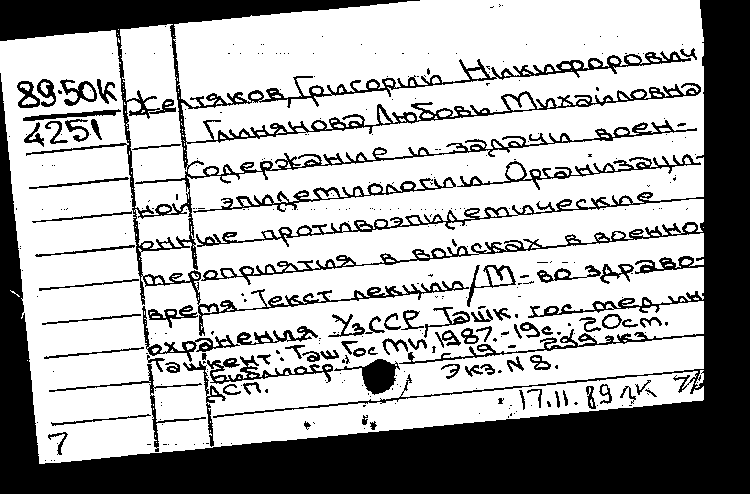 89-50К
4251
Желтяков, Григорий Никифорович,
Глинянова, Любовь Михайловна
Содержание и задачи воен-
ной эпидемиологии. Организаци-
онные противоэпидемические
мероприятия в войсках в военное
время: Текст лекции / М-во здраво-
охранения УзССР, Ташк. гос. мед. ин-
Ташкент: ТашГосМИ, 1987. - 19 с.; 20 см.
Библиогр.: с. 19. - 299 экз.
ДСП. Экз. N 8.
17.11.89
7